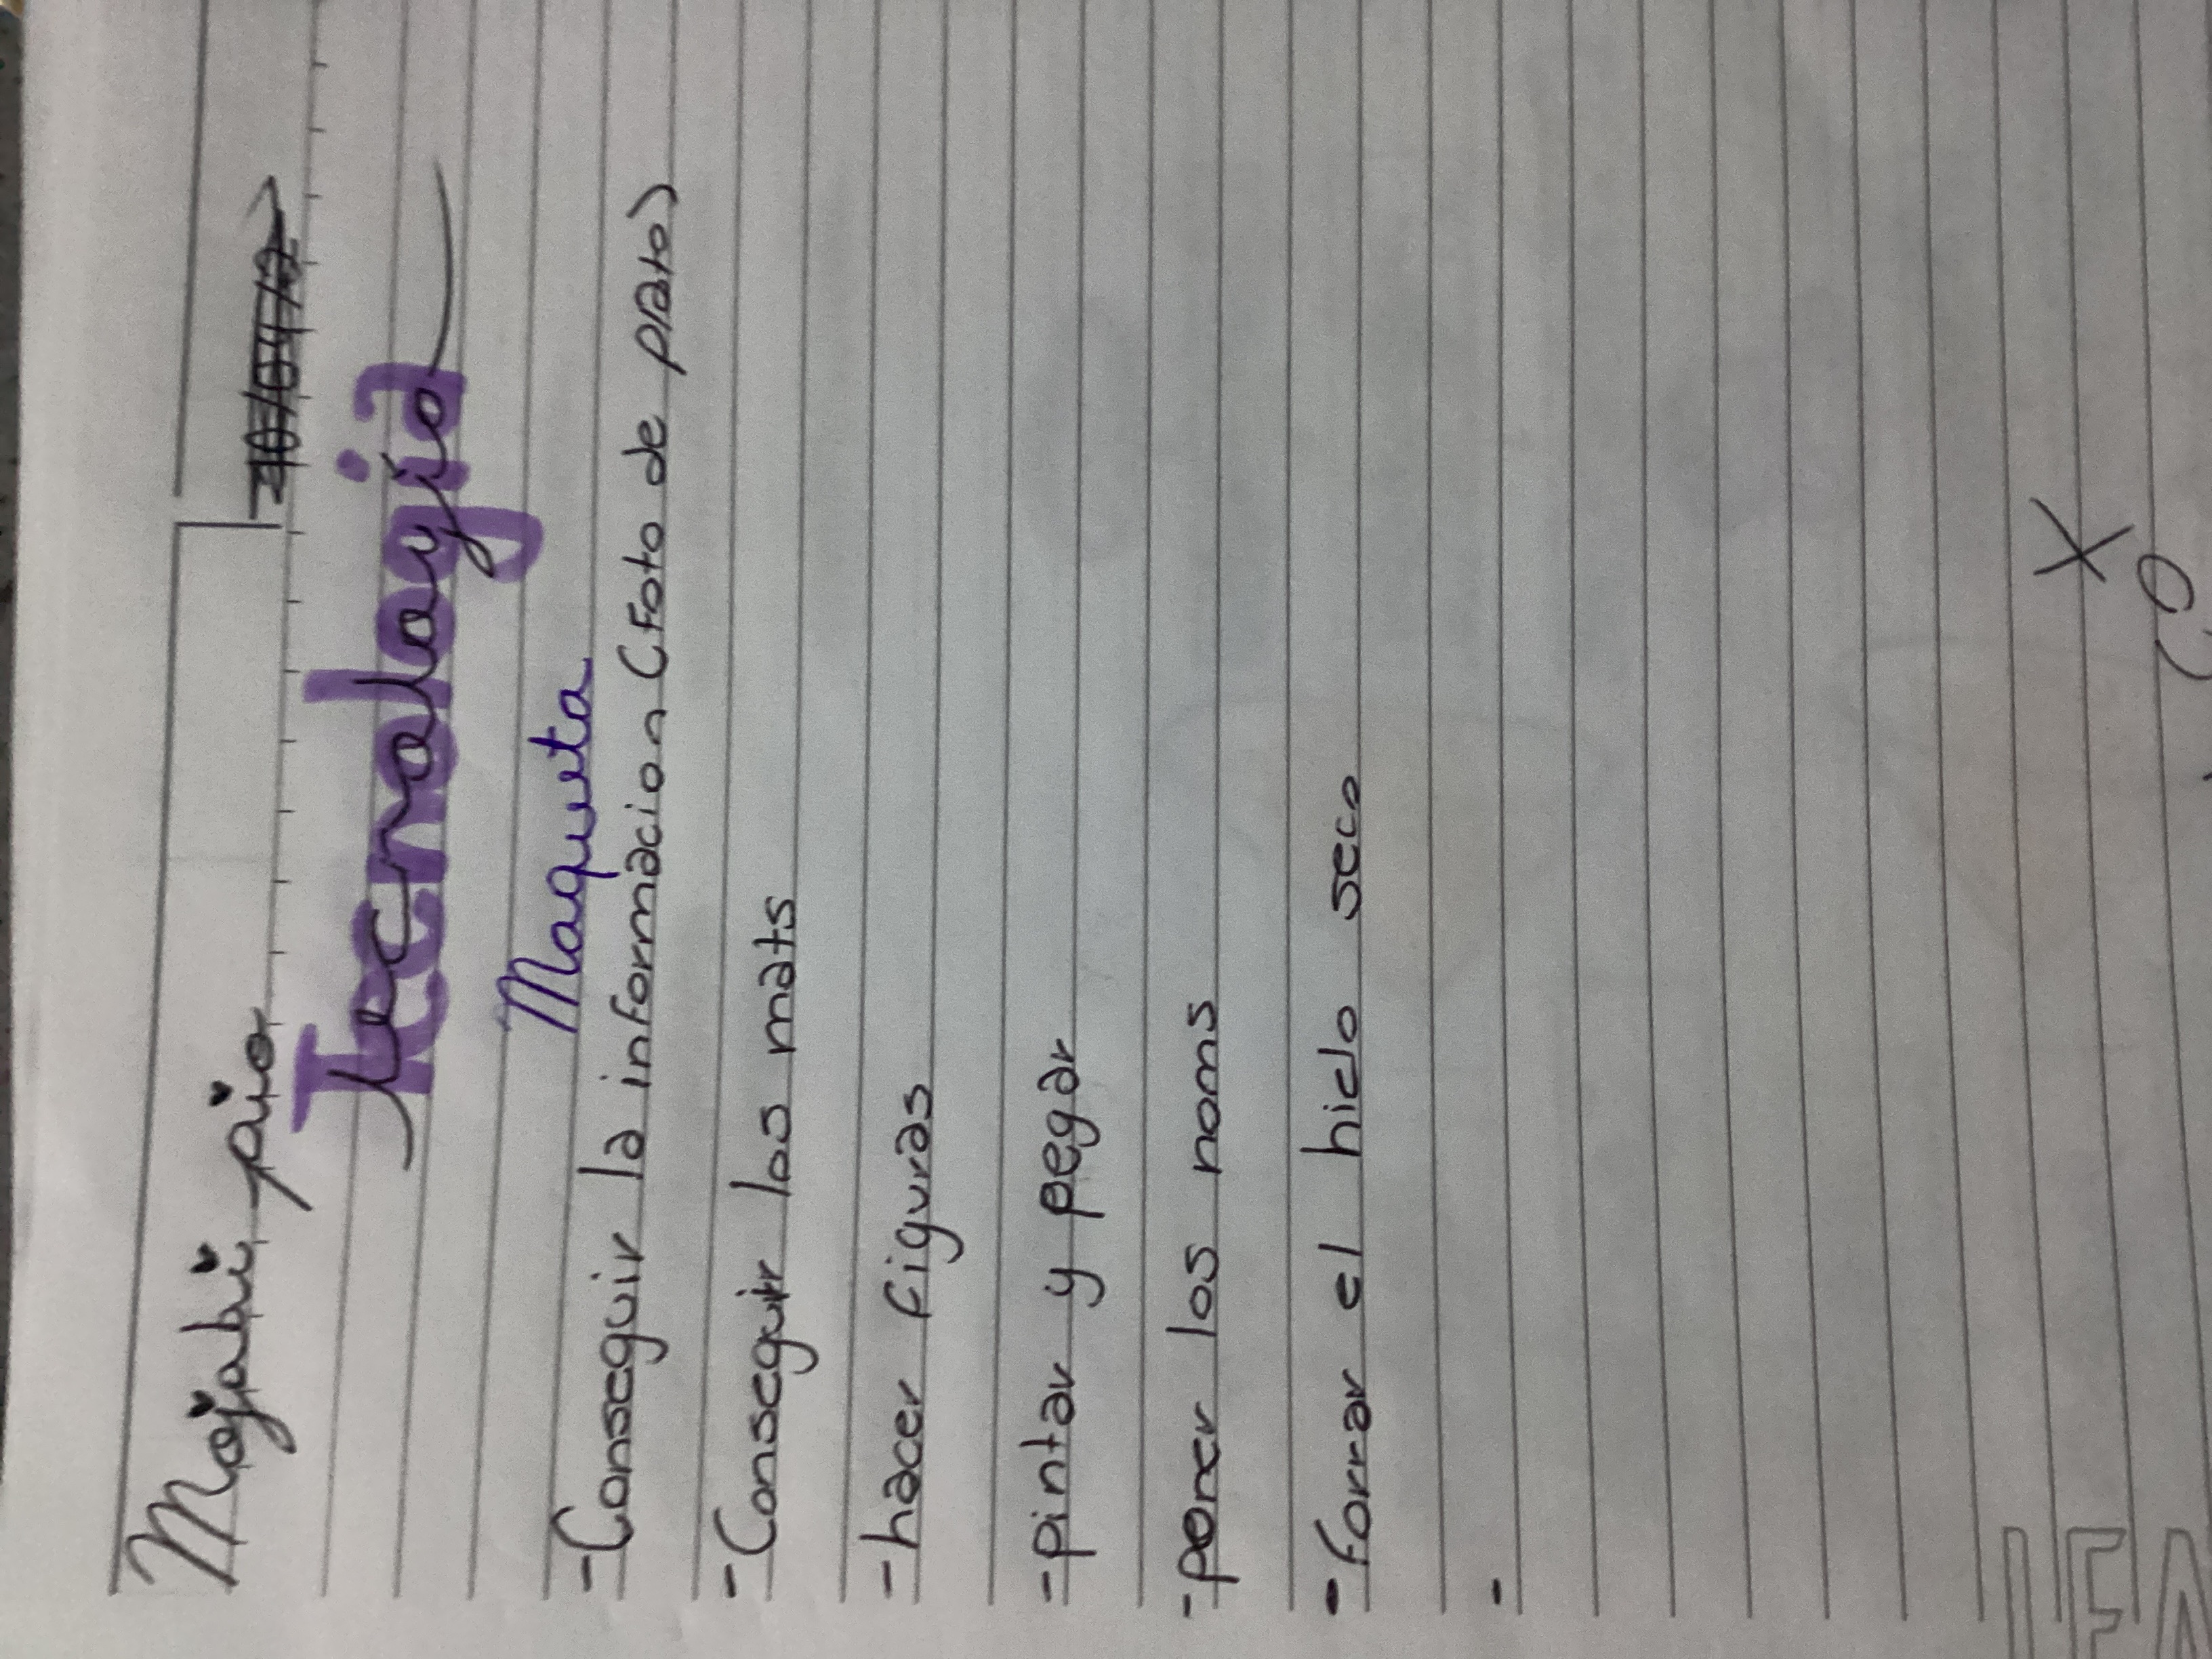 Majabi pio
Tecnologia
Maqueta
-Conseguir la informacion (Foto de plato)
-Conseguir los mats
-hacer figuras
-pintar y pegar
-poner los noms
-forrar el hielo seco
-
X